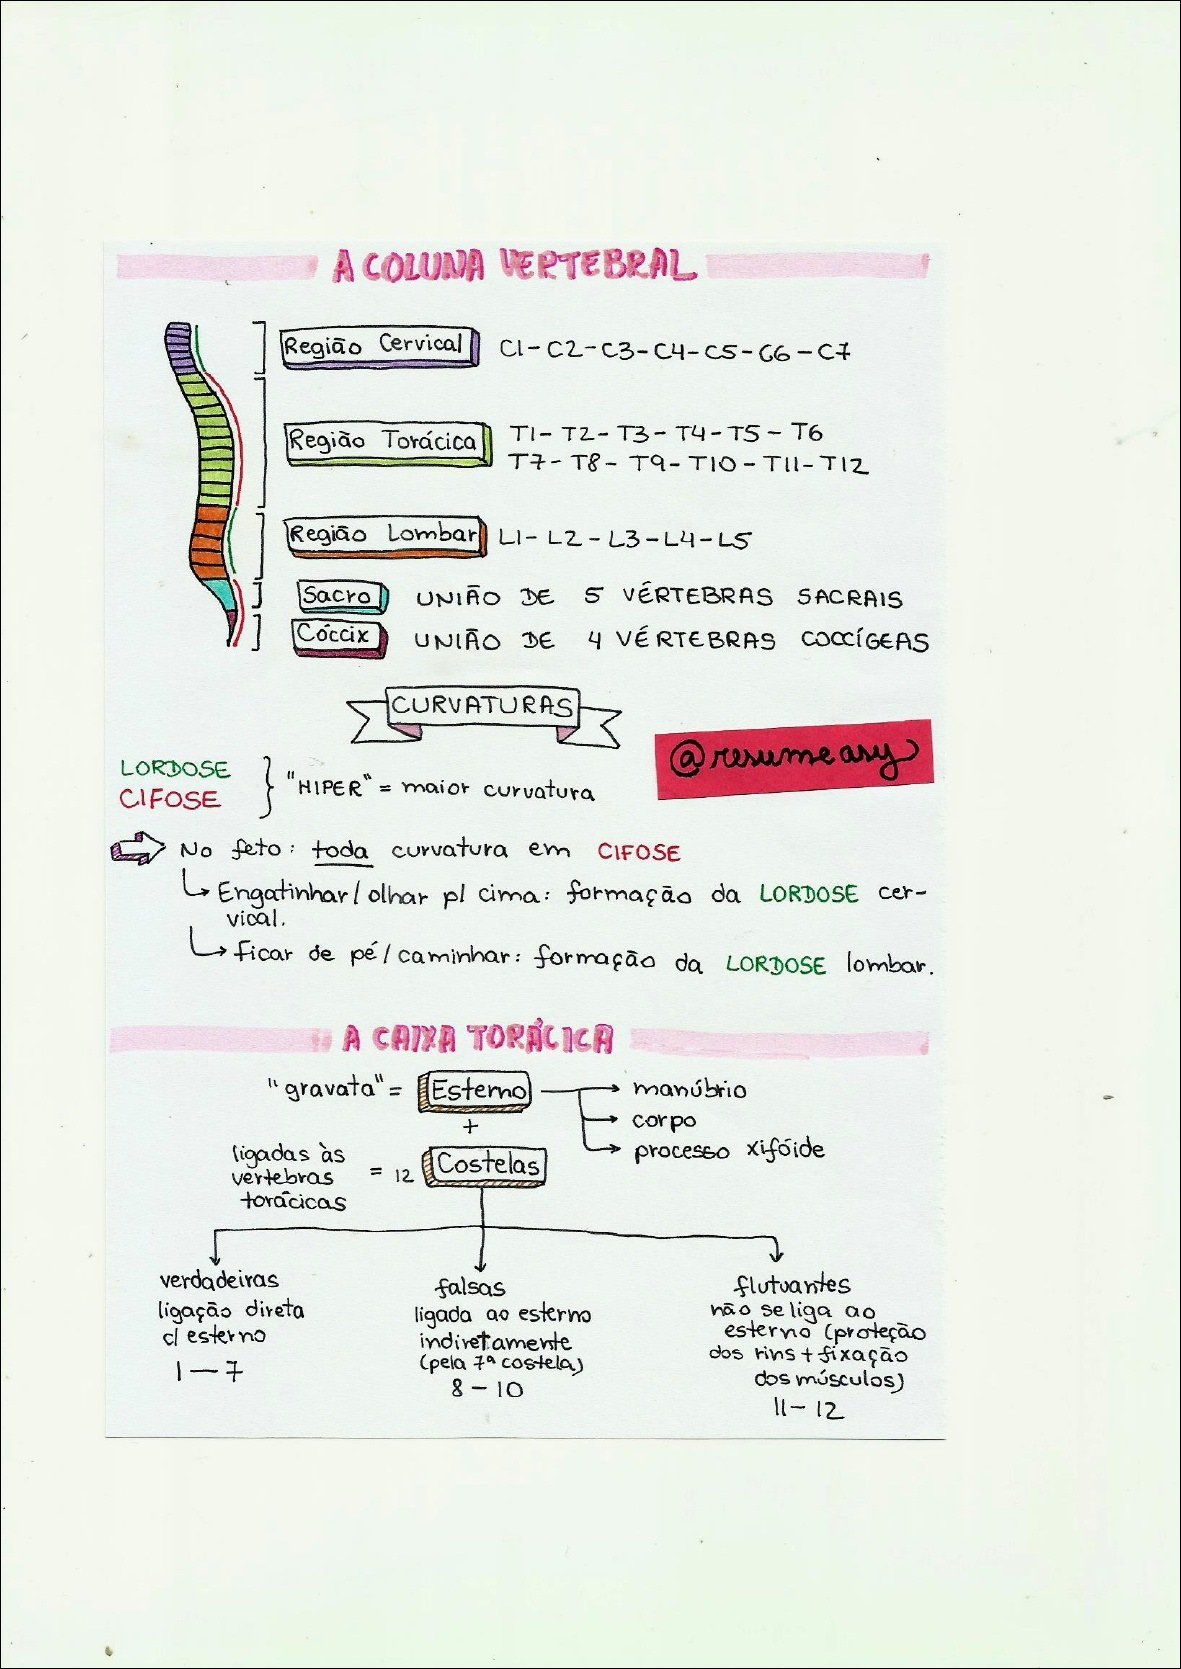 A COLUNA VERTEBRAL
Região Cervical C1-C2-C3-C4-C5-C6-C7
Região Torácica T1-T2-T3-T4-T5-T6
T7-T8-T9-T10-T11-T12
Região Lombar L1-L2-L3-L4-L5
Sacro UNIÃO DE 5 VÉRTEBRAS SACRAIS
Cóccix UNIÃO DE 4 VÉRTEBRAS COCCÍGEAS
CURVATURAS
@resumeasy
LORDOSE
CIFOSE
"HIPER" = maior curvatura
No feto: toda curvatura em CIFOSE
Engatinhar/olhar p/ cima: formação da LORDOSE cer-
vical.
Ficar de pé/caminhar: formação da LORDOSE lombar.
A CAIXA TORÁCICA
"gravata" = Esterno
manúbrio
corpo
processo xifóide
+
ligadas às
vértebras
torácicas
= 12 Costelas
verdadeiras
ligação direta
c/ esterno
1-7
falsas
ligada ao esterno
indiretamente
(pela 7ª costela)
8-10
flutuantes
não se liga ao
esterno (proteção
dos rins + fixação
dos músculos)
11-12